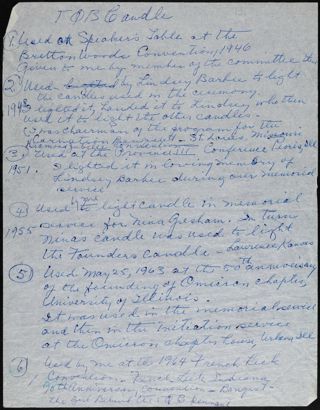 ΓΦΒ Candle
1. Used on Speakers Table at the
Bretton Woods Convention, 1946
Given to me by member of the committee then
2. Used by Lindsey Barbee to light
the candles used in the ceremony.
1948 I lighted it, handed it to Lindsey who then
used it to light the other candles.
I was chairman of the program for the
Carnation Banquet. St. Louis, Missouri
3. Used at the Province III Conference Peoria, Ill
1951. I lighted it in loving memory of
Lindsey Barbee during our memorial
service
4. Used by me to light candle in memorial
1955 service for Nina Gresham. In turn
Nina's candle was used to light
the Founders candle - Lawrence, Kansas
5. Used May 25, 1963 at the 50th anniversary
of the founding of Omicron chapter,
University of Illinois.
It was used in the memorial service
and then in the Initiation service
at the Omicron chapter house, Urbana, Ill
6. Used by me at the 1964 French Lick
Convention. French Lick, Indiana
90th Anniversary Convention Banquet